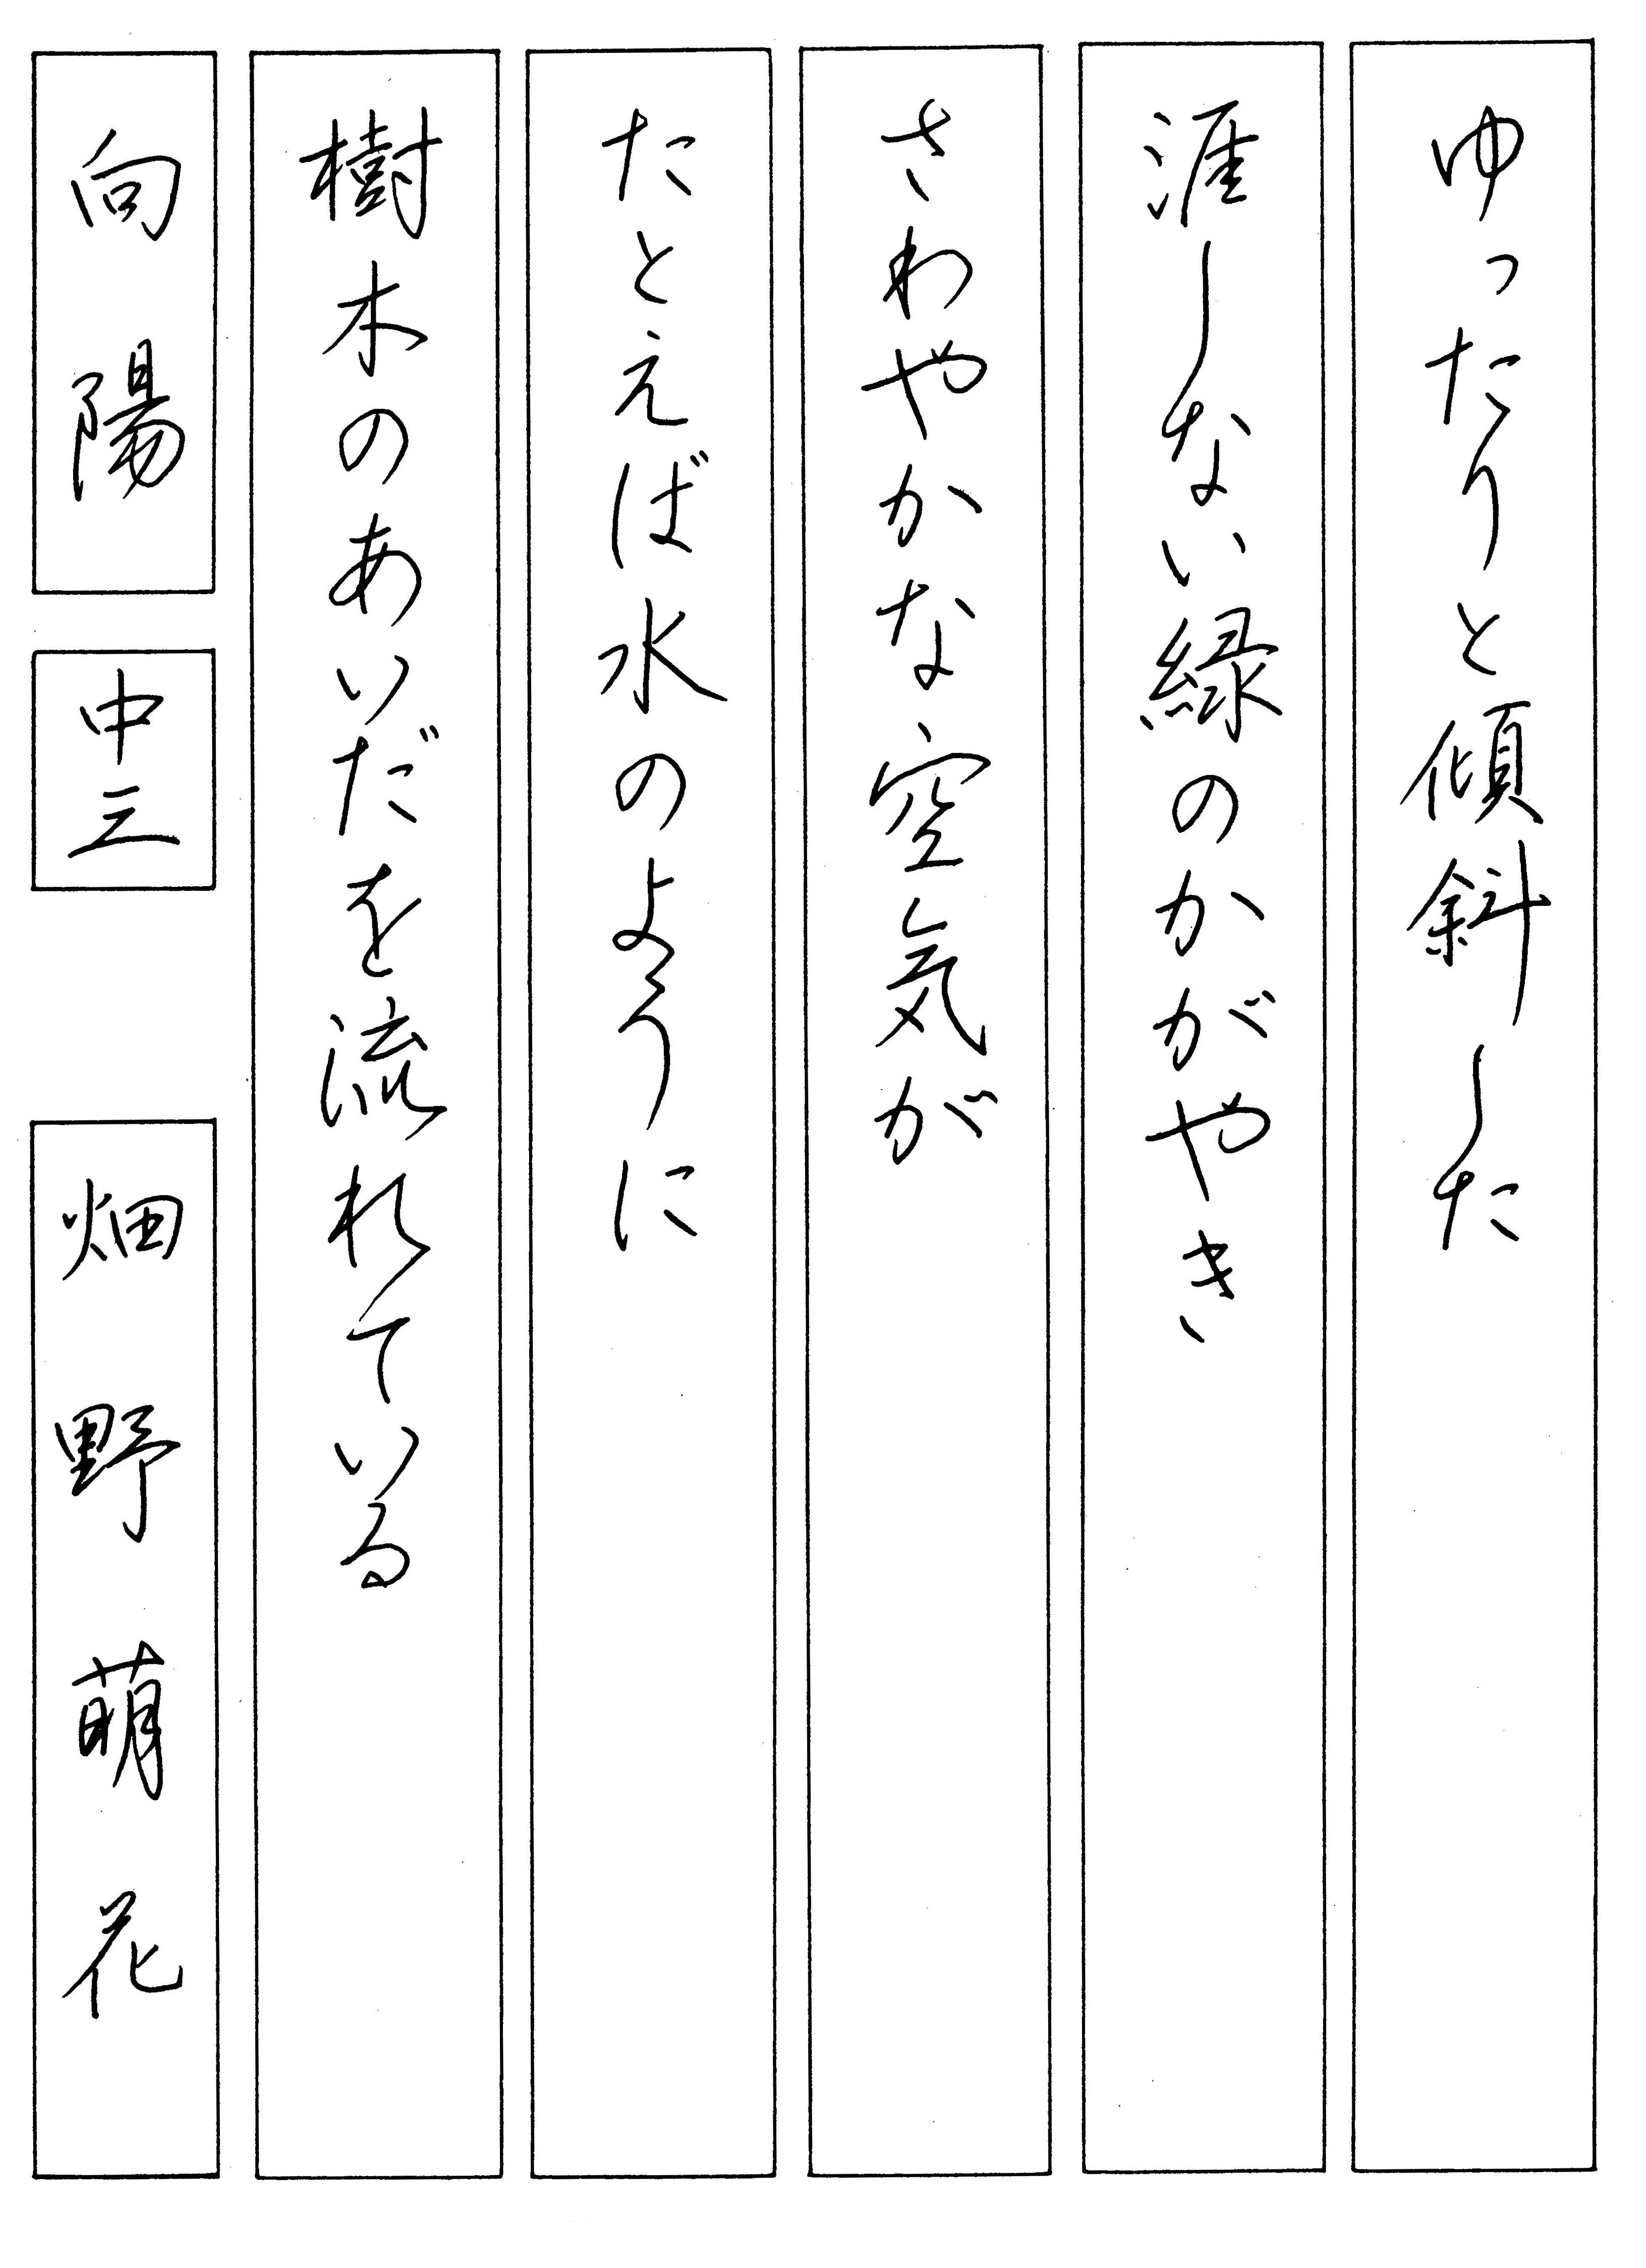 ゆったりと傾斜した
涯しない緑のかがやき
さわやかな空気が
たとえば水のように
樹木のあいだを流れている
向陽
中三
畑野萌花